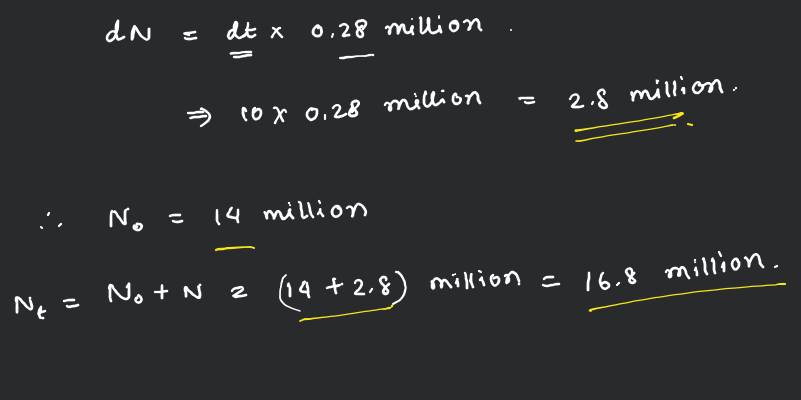 dN = dt x 0.28 million.
⇒ 10 x 0.28 million = 2.8 million.
∴ N₀ = 14 million
Nₜ = N₀ + N = (14 + 2.8) million = 16.8 million.